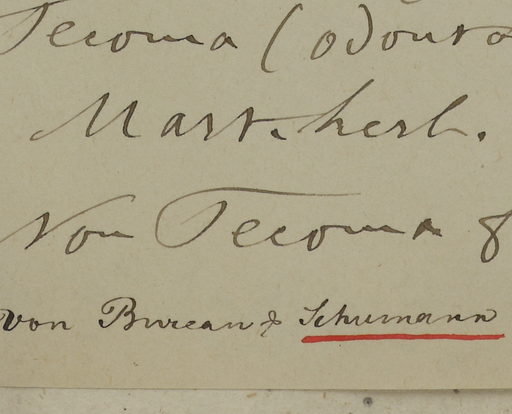 Tecoma (odonta
Mart. herb.
Non Tecoma
von Bureau & Schumann